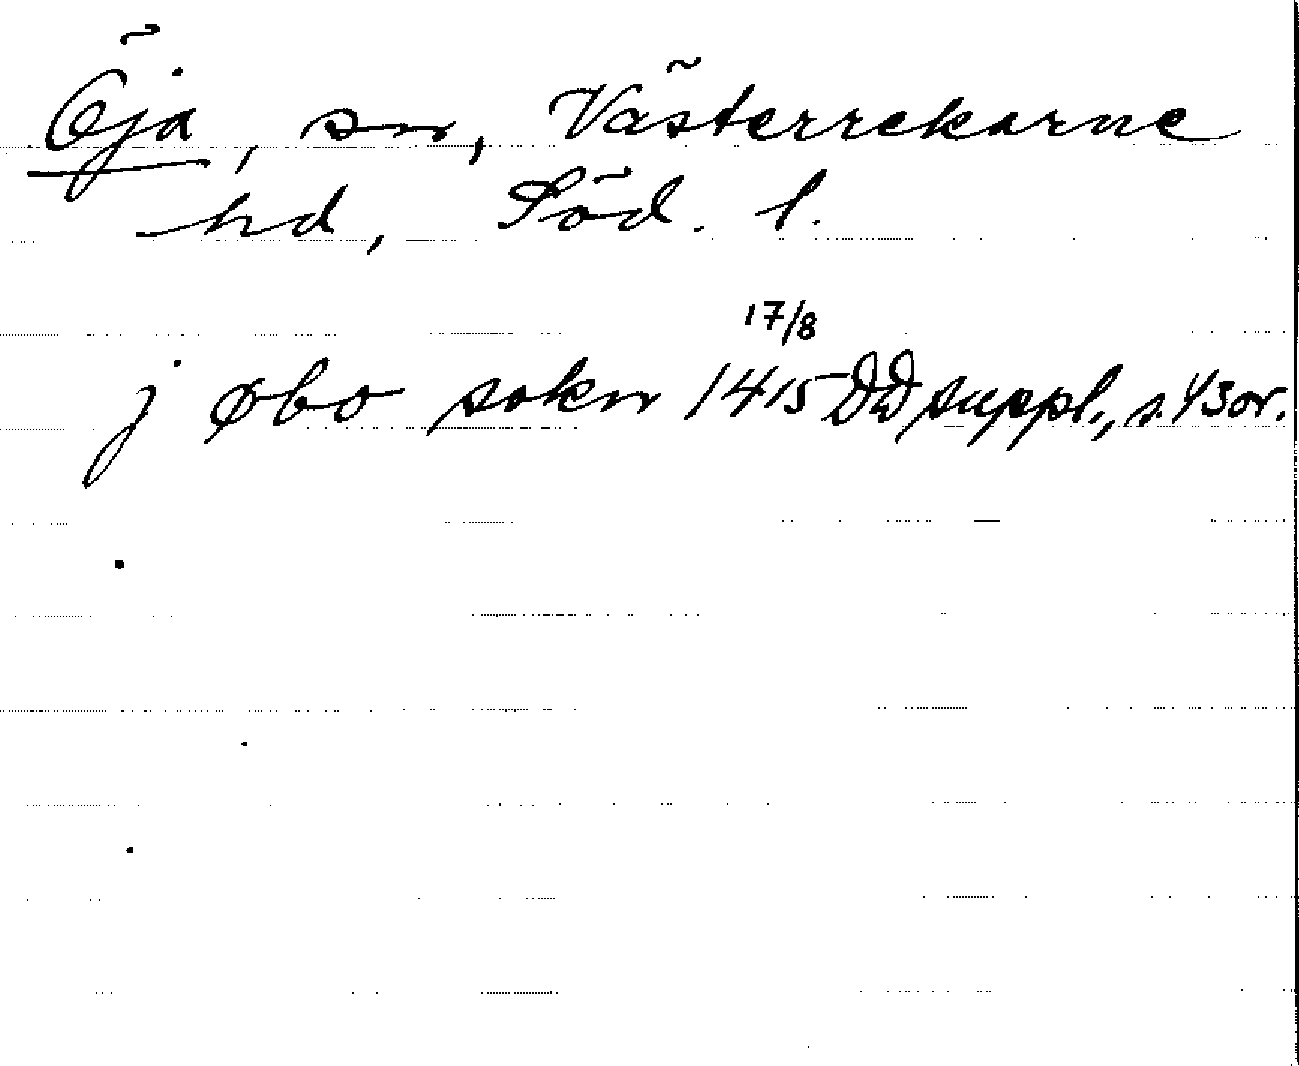 Öja, sn, Västerrekarne
hd, Söd. l.
17/8
j øbo sokn 1415 DD suppl., s. 43 or.